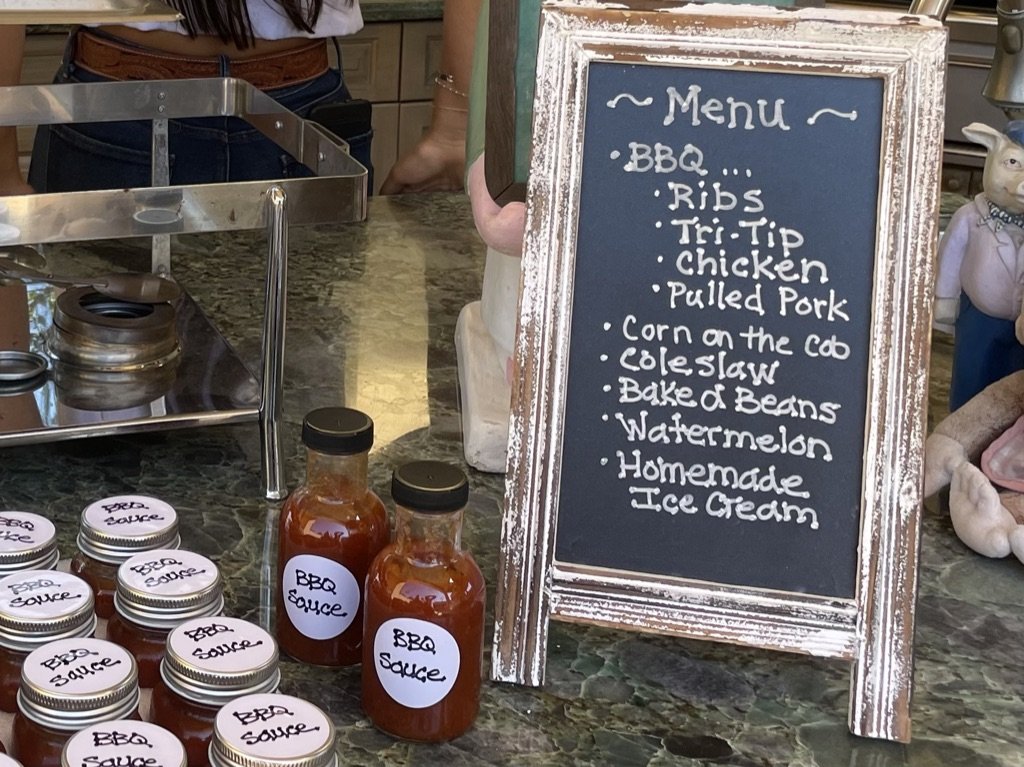 ~ Menu ~
• BBQ ...
• Ribs
• Tri-Tip
• Chicken
• Pulled Pork
• Corn on the cob
• Coleslaw
• Baked Beans
• Watermelon
• Homemade
Ice Cream
BBQ
Sauce
BBQ
Sauce
BBQ
Sauce
BBQ
Sauce
BBQ
Sauce
BBQ
Sauce
BBQ
Sauce
BBQ
Sauce
BBQ
Sauce
BBQ
Sauce